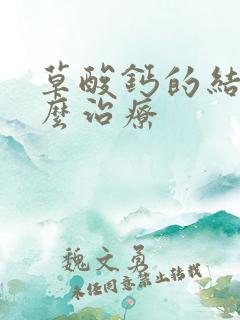 草酸鈣的結
麼治療
魏文勇
未经同意禁止转载